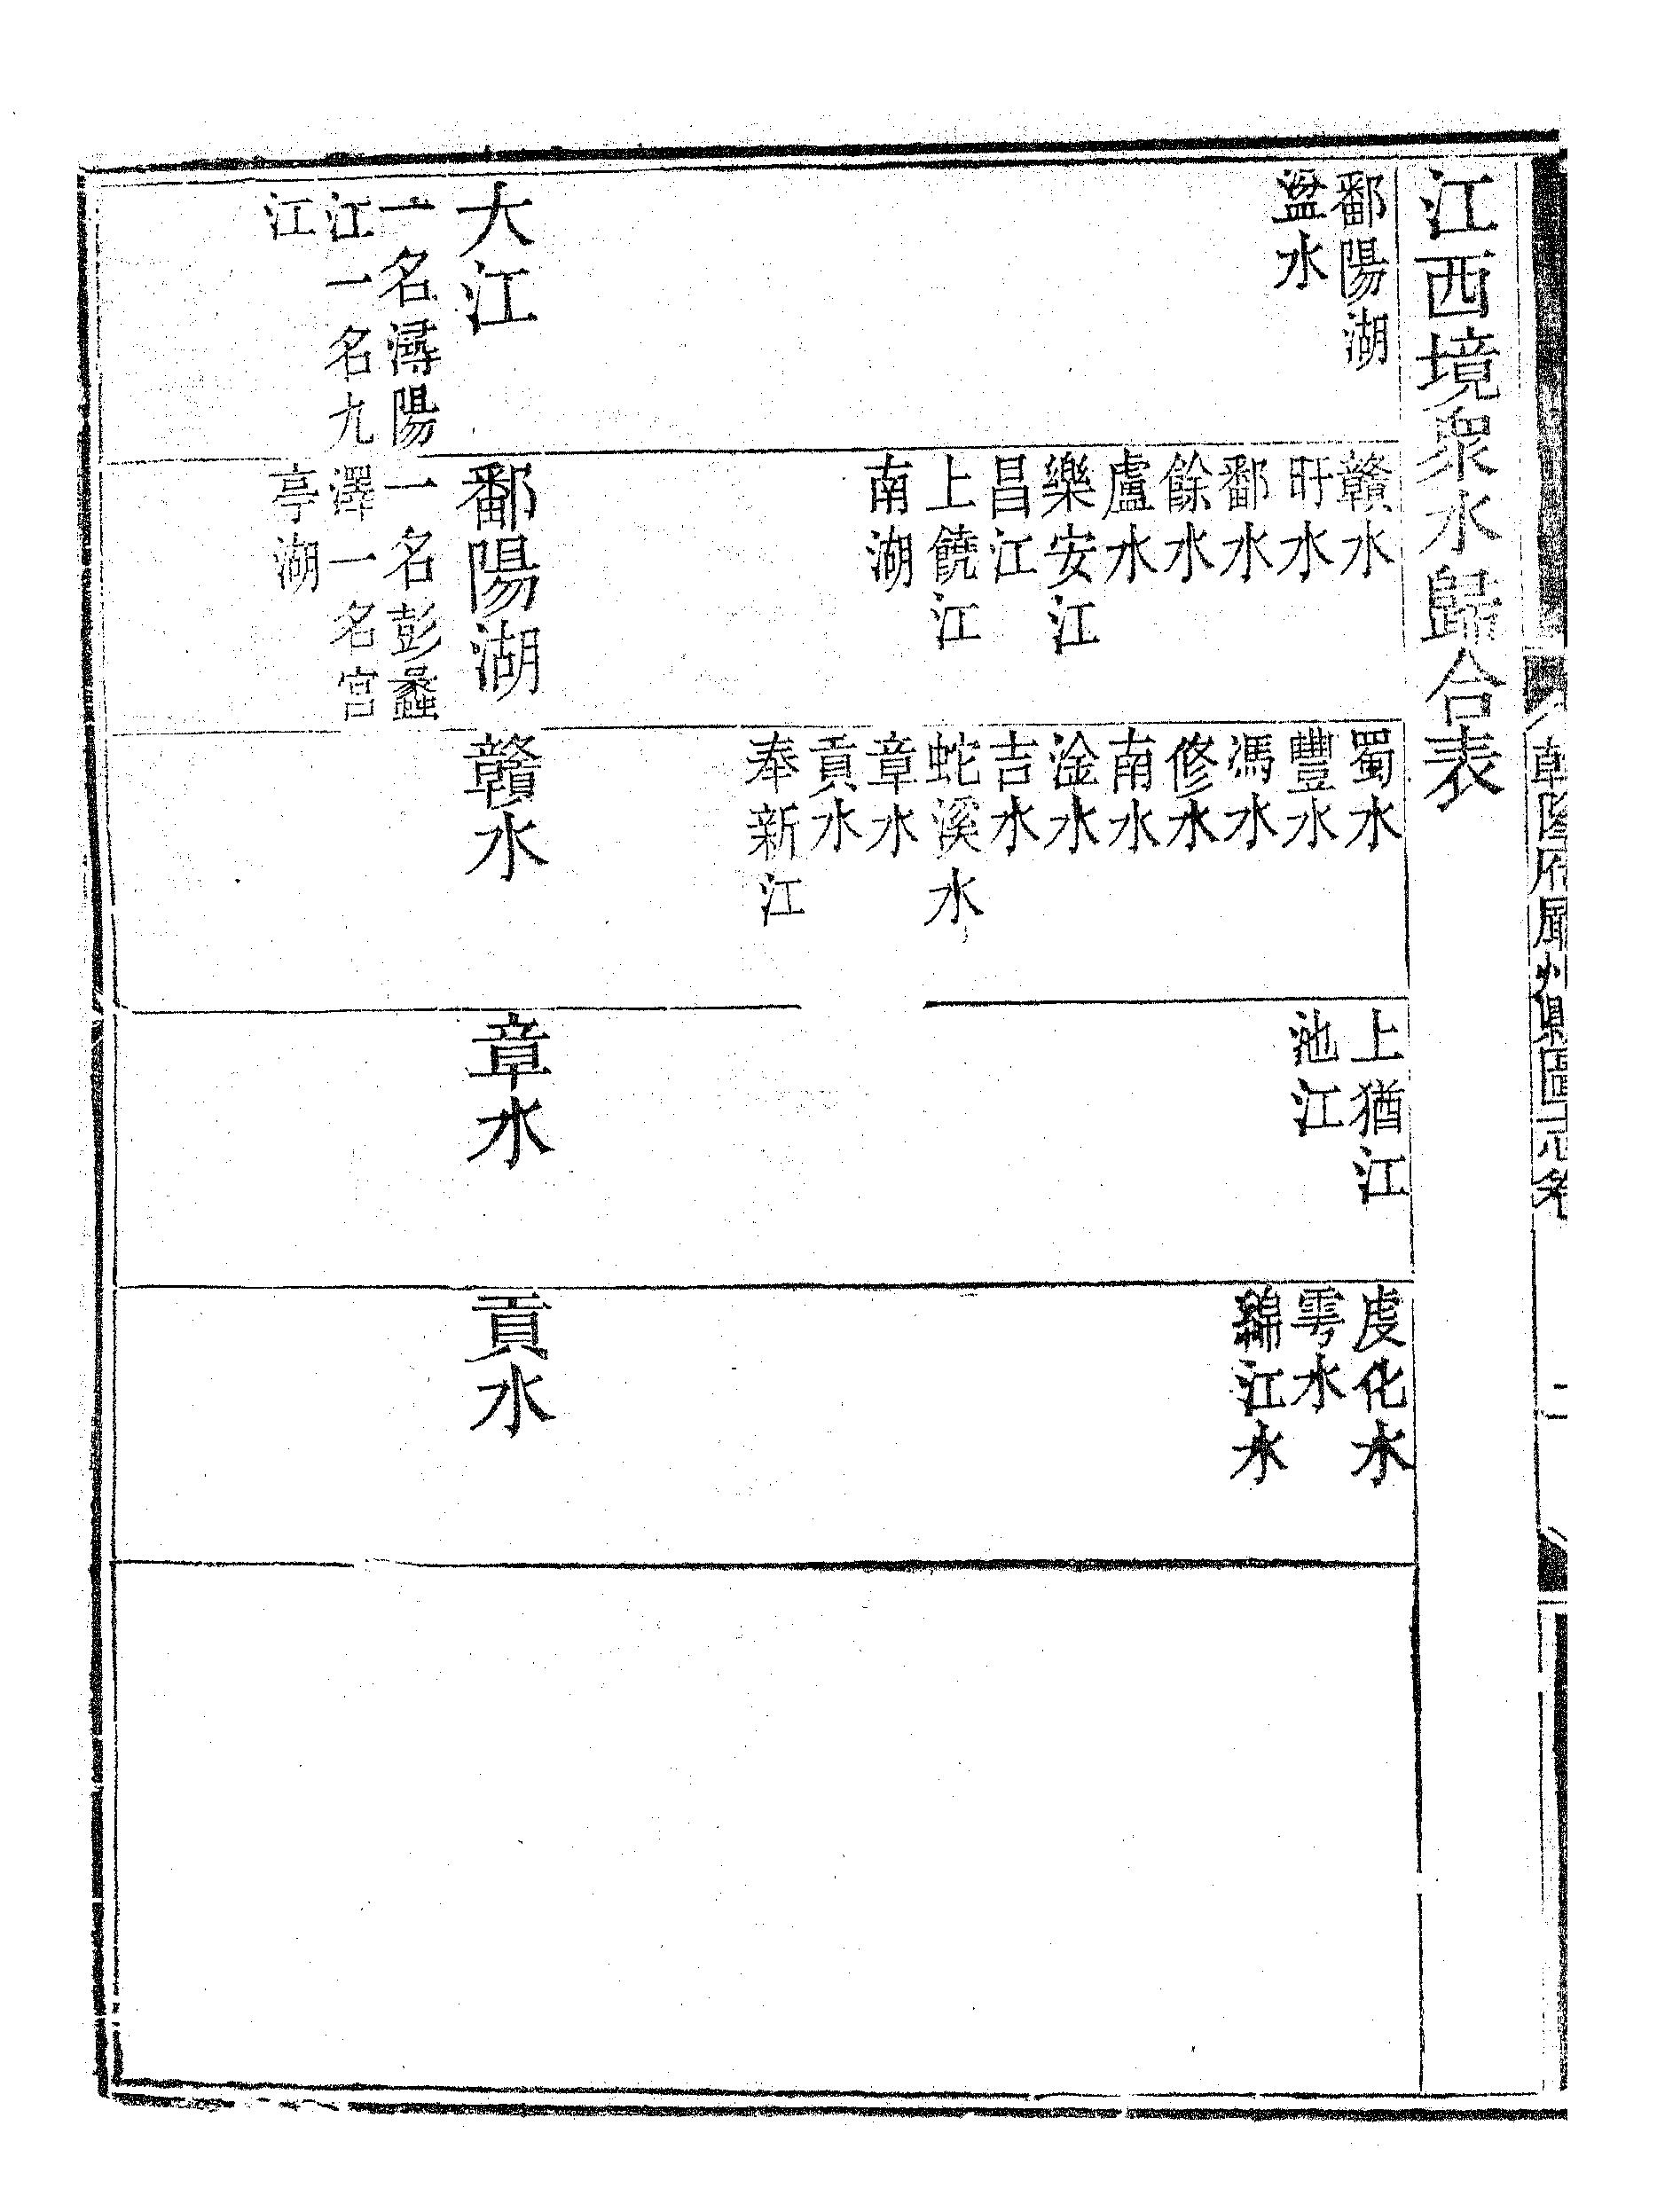 江西境衆水歸合表
鄱陽湖
湓水
大江
一名潯陽
江一名九
江
贛水
旴水
鄱水
餘水
盧水
樂安江
昌江
上饒江
南湖
鄱陽湖
一名彭蠡
澤一名宮
亭湖
蜀水
豐水
馮水
修水
南水
淦水
吉水
蛇溪水
章水
貢水
奉新江
贛水
上猶江
池江
章水
虔化水
雩水
綿江水
貢水
乾隆府廳州縣圖志卷
二